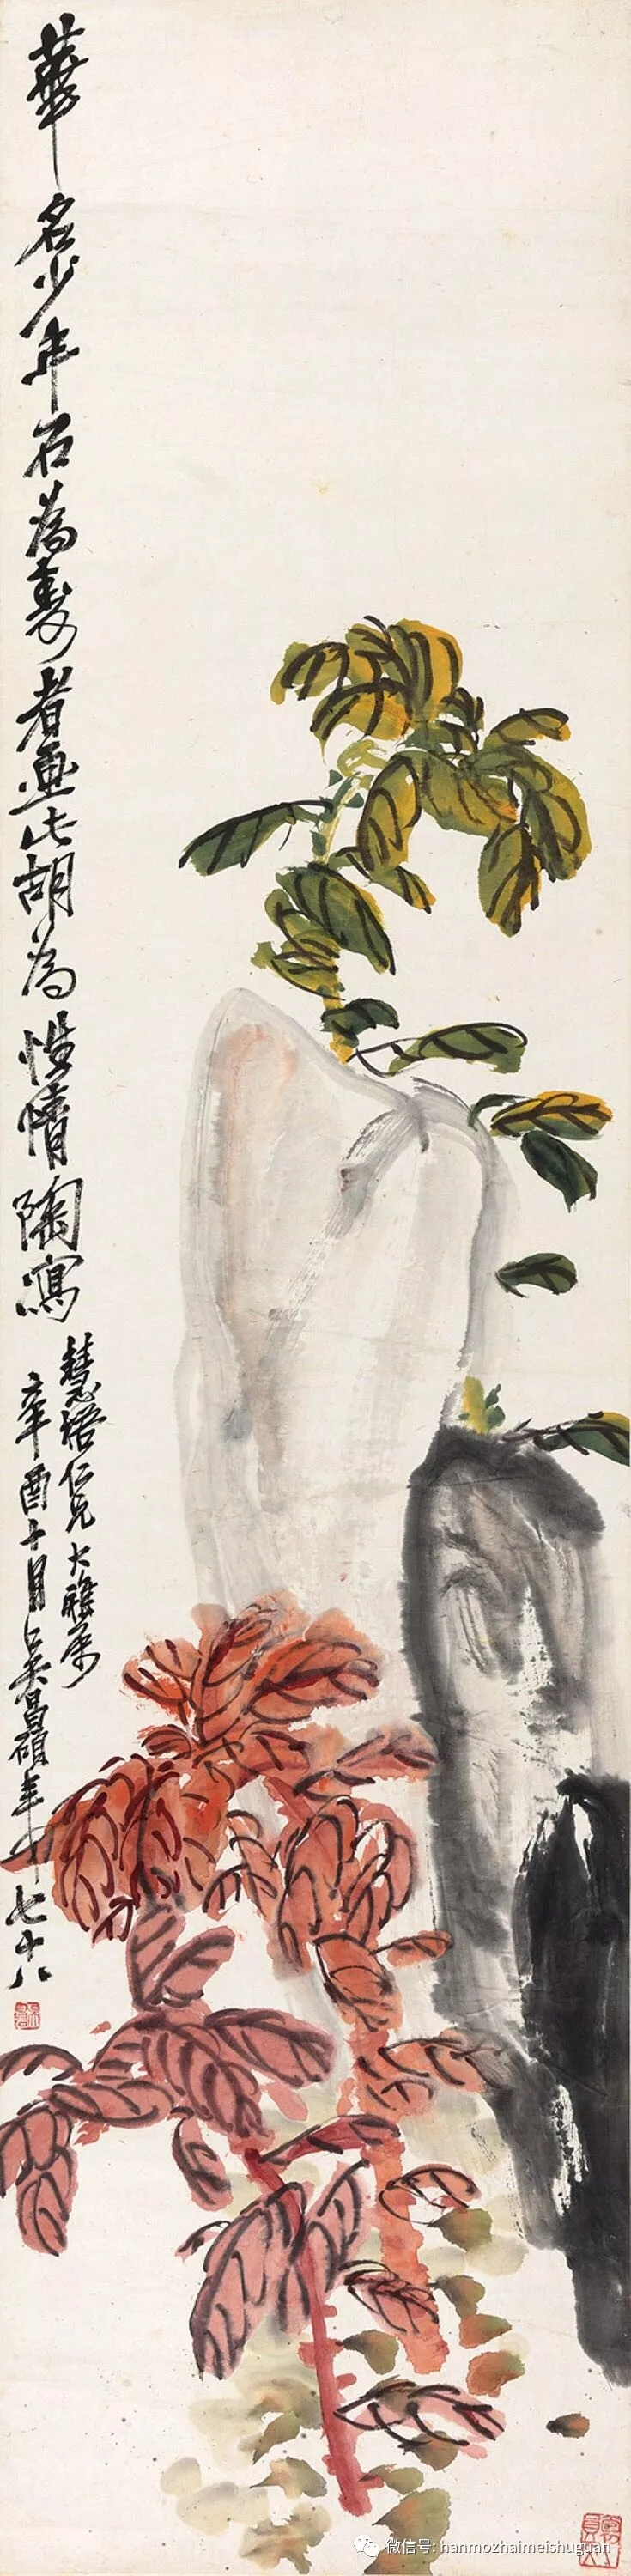 華名少年石為壽者畫此胡為性情陶寫
慧悟仁兄大雅屬
辛酉十月吳昌碩年七十八
微信号: hanmozhaimeishuguan